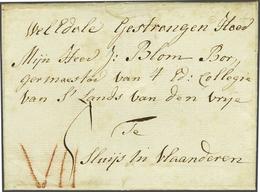 WelEdele Gestrengen Heed
Mijn Heed J: Blom Bor,
germaester van 't Ed: Collegie
van St Lands van den vrye
Te
Sluijs in Vlaanderen
VII